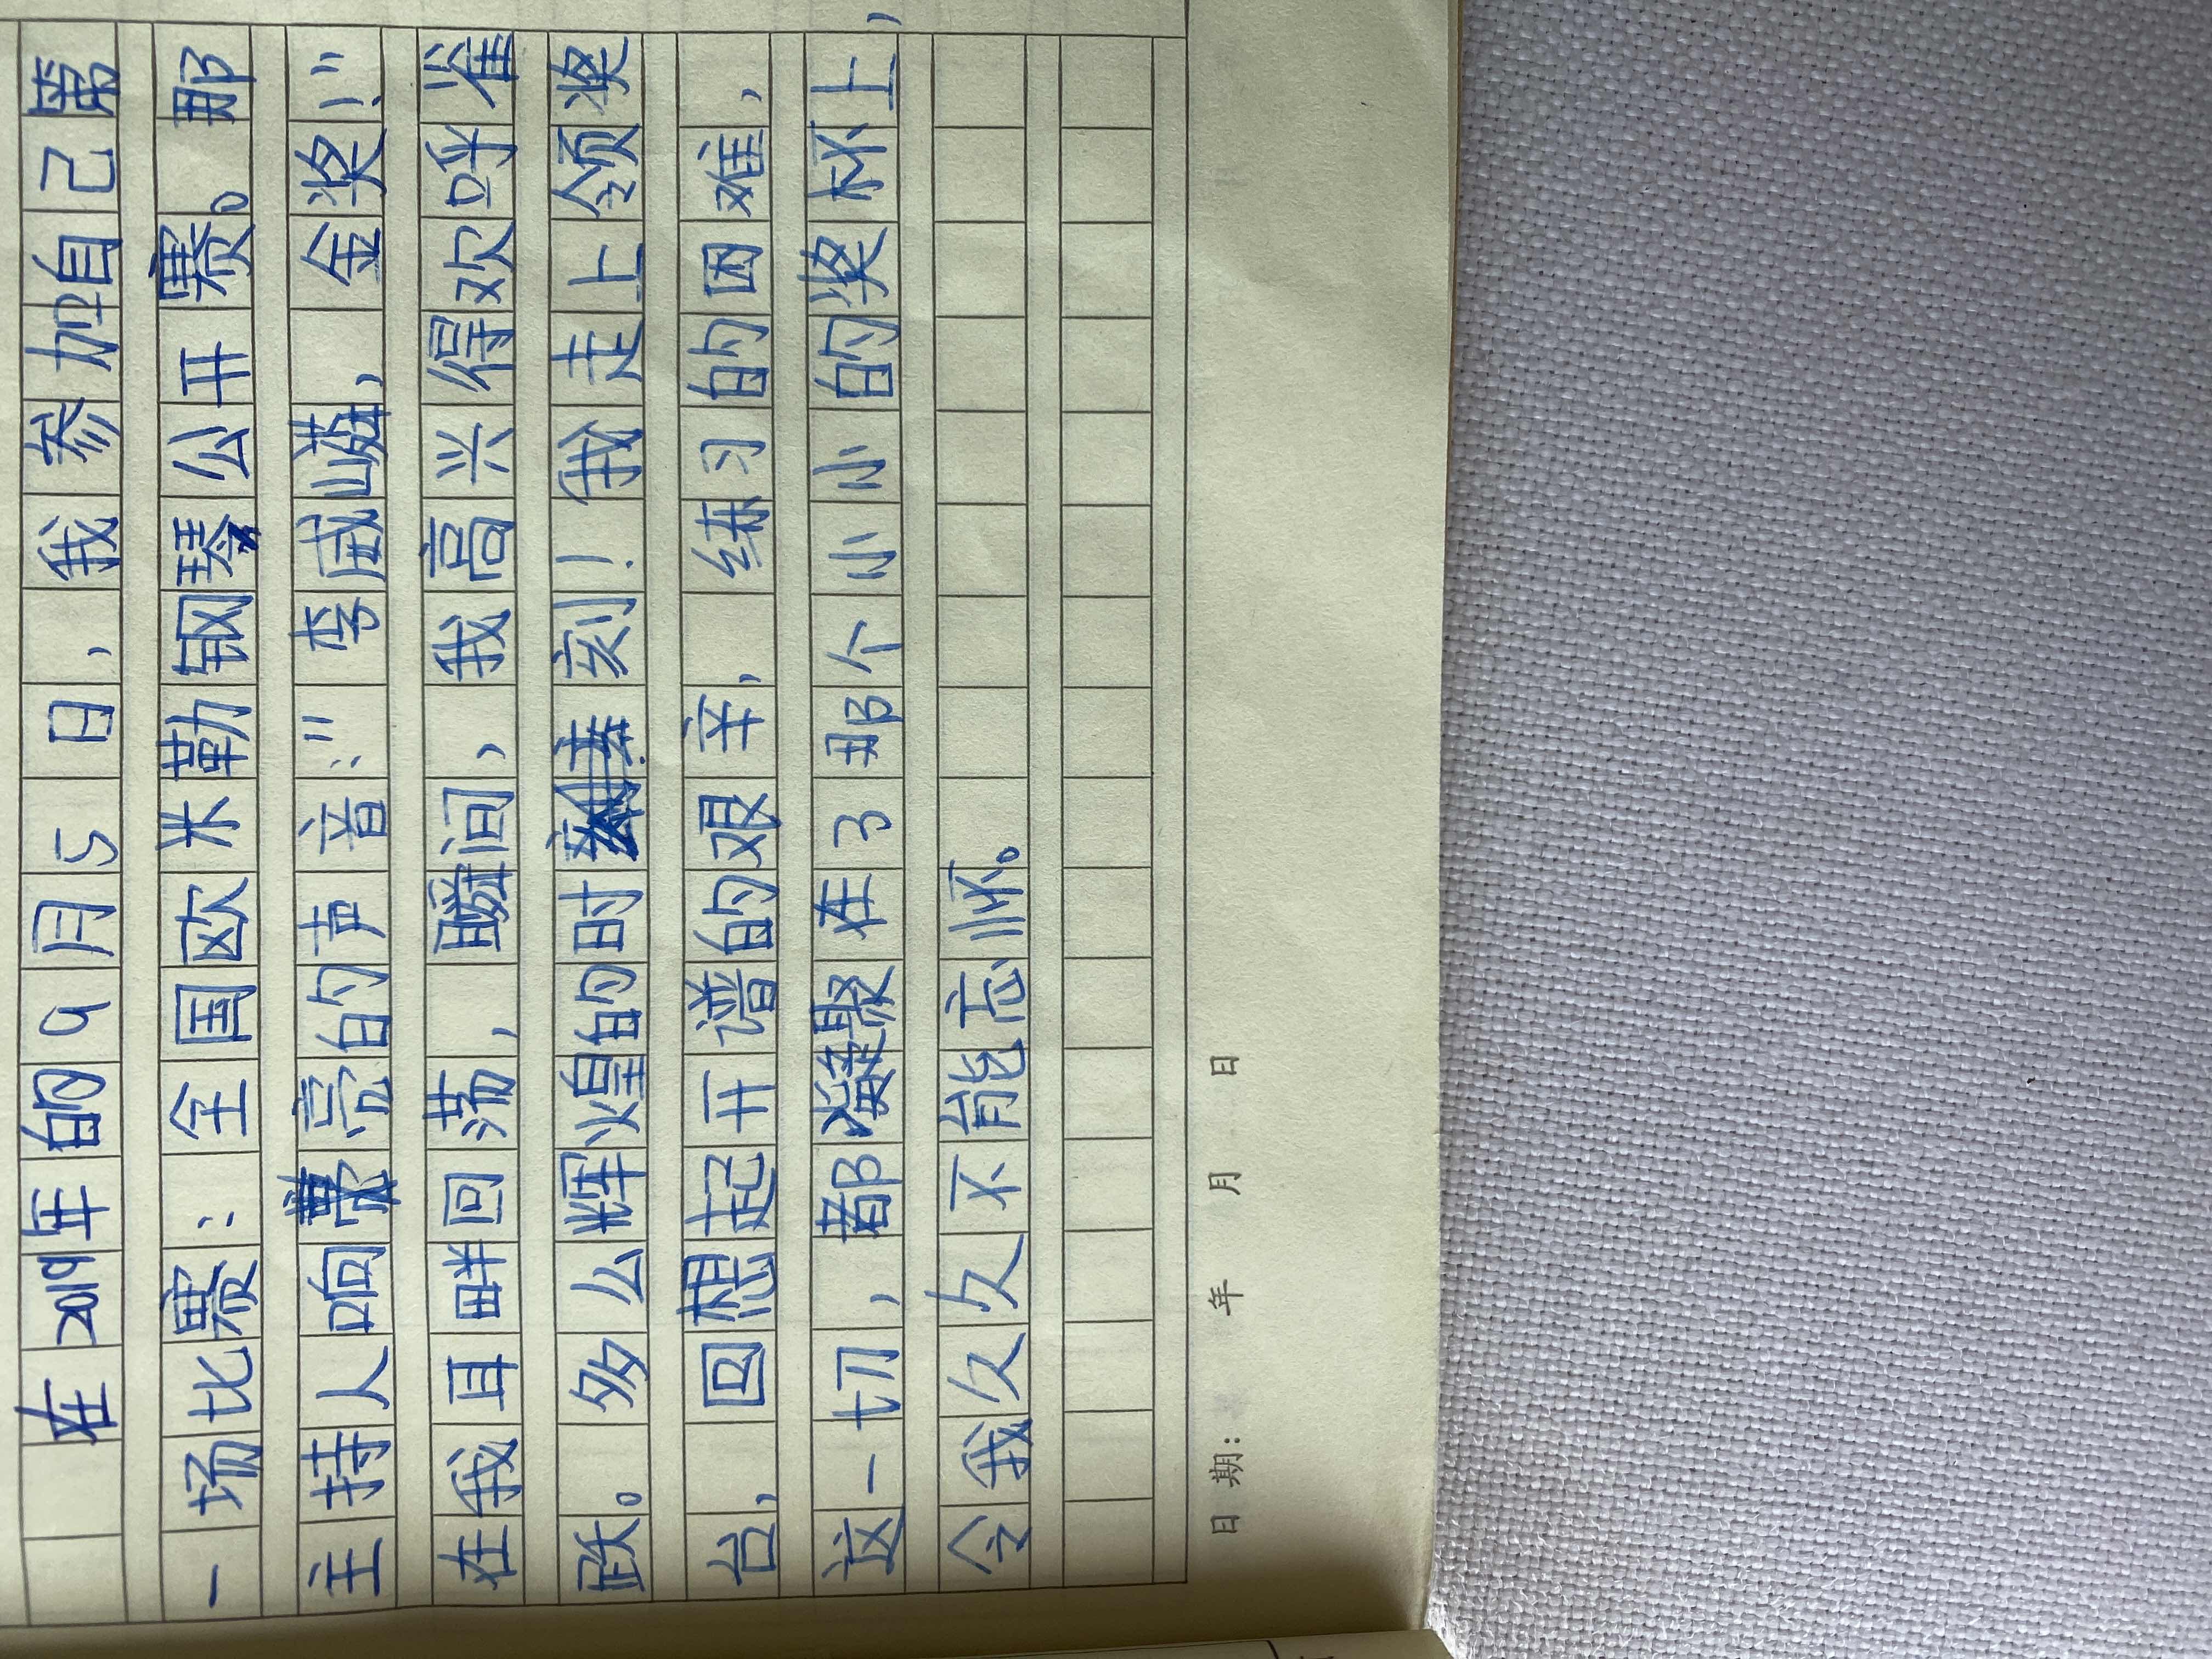 在2019年的9月5日,我参加自己第
一场比赛:全国欧米勒钢琴公开赛。那
主持人响亮的声音:"李威,金奖!"
在我耳畔回荡,瞬间,我高兴得欢呼雀
跃。多么辉煌的时刻!我走上领奖
台,回想起开谱的艰辛,练习的困难,
这一切,都凝聚在了那个小小的奖杯上,
令我久久不能忘怀。
日期: 年 月 日